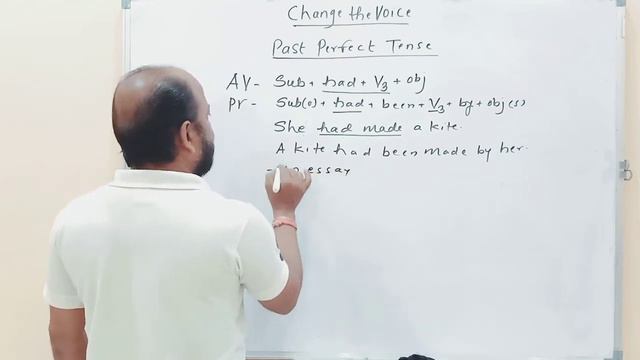 Change the Voice
Past Perfect Tense
AV- Sub + had + V3 + obj
PV- Sub(o) + had + been + V3 + by + obj(s)
She had made a kite.
A kite had been made by her.
essay